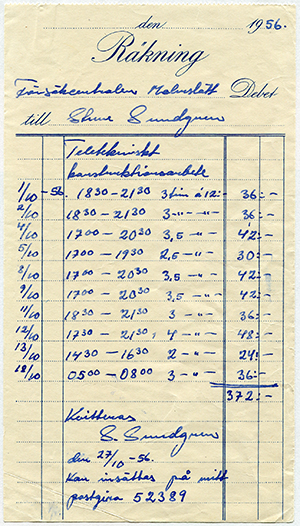 den 1956.
Räkning
Försökcentralen Malmslätt Debet
till Sture Sundgren
Teletekniskt
konstruktionsarbete
1/10 -56. 1830-2130 3 tim á 12:- 36:-
2/10 1830-2130 3 -"- -"- 36:-
4/10 1700-2030 3,5 -"- 42:-
5/10 1700-1930 2,5 -"- 30:-
8/10 1700-2030 3,5 -"- 42:-
9/10 1700-2030 3,5 -"- 42:-
11/10 1830-2130 3 -"- 36:-
12/10 1730-2130, 4 -"- 48:-
13/10 1430-1630 2 -"- 24:-
18/10 0500-0800 3 -"- 36:-
372:-
Kvitteras
S. Sundgren
den 27/10 -56.
Kan insättas på mitt
postgiro 52389